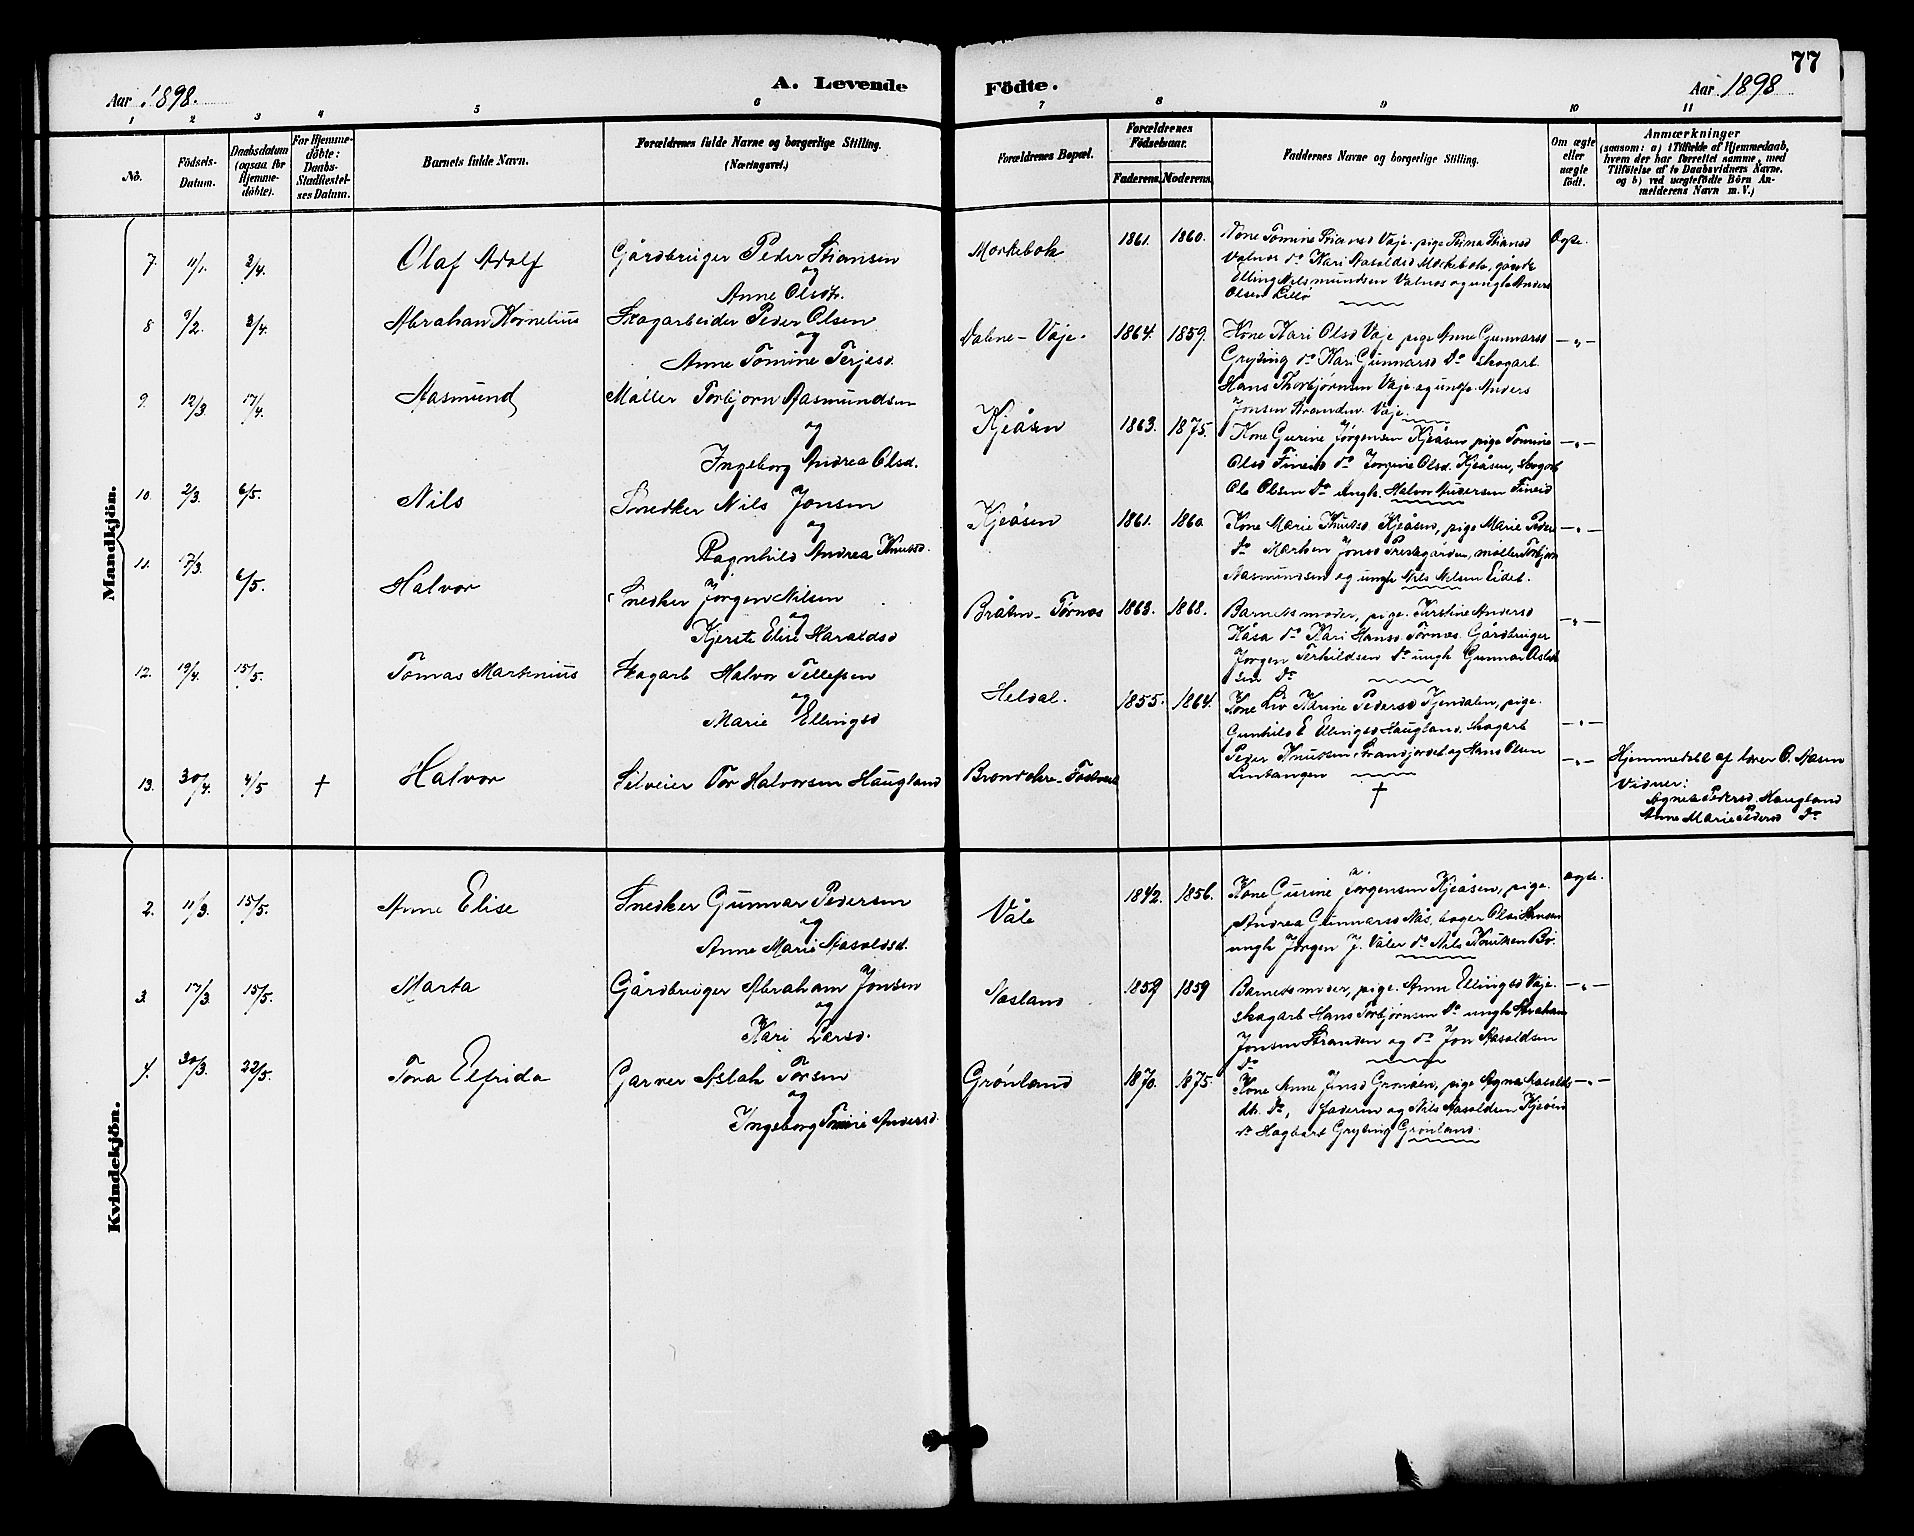 77
Aar 1898.
A. Levende
Födte.
Aar 1898
1 2 3 4 5 6 7 8 9 10 11
No.
Födsels-Datum.
Daabsdatum (ogsaa för Hjemme-döbte).
For Hjemme-döbte: Daabs-Stadfestel-ses Datum.
Barnets fulde Navn.
Forældrenes fulde Navne og borgerlige Stilling.
(Næringsvei.)
Forældrenes Bopæl.
Forældrenes Födselsaar.
Faderens. Moderens.
Faddernes Navne og borgerlige Stilling.
Om ægte eller uægte födt.
Anmærkninger
(saasom: a) i Tilfælde af Hjemmedaab,
hvem der har forrettet samme, med
Tilföielse af to Daabsvidners Navne.
og b) ved uægtefödte Börn An-
melderens Navn m. V.)
Mandkjön.
7. 11/1. 3/4. Olaf Adolf Gårdbruger Peder Stiansen
og
Anne Olsdtr.
Morkebok 1861. 1860. Kone Tomine Stiansd Vaje. pige Stina Stiansd Ægte.
Valnos do Kari Aasoldsd Morkebok, gårdb
Elling Nilsmundsen Valnos og ungk Anders
Olsen Lillø
8 9/2. 3/4. Abraham Kornelius Skogarbeider Peder Olsen
og
Anne Tomine Terjesd.
Dalene - Vaje. 1864. 1859. Kone Kari Olsd Vaje pige Anne Gunnarsd -"-
Gryting do Kari Gunnarsd do Skogarb.
Hans Thorbjørnsen Vaje og ungk Anders
Jonsen Stranden Vaje.
9. 12/3 17/4. Aasmund Møller Torbjorn Aasmundsen
og
Ingeborg Andrea Olsd.
Kjeåsen 1863. 1875. Kone Gurine Jørgensen Kjeåsen pige Tomine -"-
Olsd Fineid do Jorgine Olsd. Kjeåsen, Skogarb
Ole Olsen do Ungk. Halvor Andersen Fineid
10. 2/3. 6/5. Nils Snedker Nils Jonsen
og
Ragnhild Andrea Knutsd.
Kjeåsen 1861. 1860. Kone Marie Knutsd Kjeåsen, pige Marie Peder -"-
do Marthen Jonsd Prestegården, møller Torbjørn
Aasmundsen og ungk Nils Nilsen Eidet.
11. 17/3. 6/5. Halvor Snedker Jørgen Nilsen
og
Kjerste Elise Haraldsd
Bråten - Tørnæs 1863. 1868. Barnets moder, pige. Kirstine Andersd -"-
Håsa do Kari Hansd. Tørnæs. Gårdbruger
Jørgen Terkildsen do ungk Gunnar Aslak
sen do
12. 19/4. 15/5. Tomas Martinius Skogarb Halvor Tellefsen
og
Marie Ellingsd
Heldal. 1855. 1864. Kone Liv Karine Pedersd Tjendalen, pige. -"-
Gunhild E Ellingsd Haugland, Skogarb
Peder Knutsen Strandjordet og Hans Olsen
Lintangen
13. 30/4. 4/5 † Halvor Seilveier Tor Halvorsen Haugland -"-
†
Hjemmedøbt af lærer O. Aasen
Vidner:
Agnete Pedersd. Haugland
Anne Marie Pedersd do
Kvindekjön.
2. 11/3. 15/5. Anne Elise Snedker Gunnar Pedersen
og
Anne Marie Aasoldsd.
Våle 1842. 1856. Kone Gurine Jørgensen Kjeåsen, pige. ægte.
Andrea Gunnarsd Nås, bager Olai Hansen
ungk Jørgen J. Våler do Nils Knutsen Bø.
3. 17/3 15/5. Marta Gårdbruger Abraham Jonsen
og
Kari Larsd.
Næsland 1859 1859 Barnets moder, pige. Anne Ellingsd Vaje. -"-
Skogarb Hans Torbjørnsen do ungk Abraham
Jonsen Stranden og do Jon Aasoldsen
do
4. 30/3. 22/5. Tora Elfrida Garver Aslak Torsen
og
Ingeborg Tomine Andersd.
Grønland 1870. 1875. Kone Anne Jensd Gronåen, pige Agnes Aasolds -"-
dtr. do, faderen og Nils Aasoldsen Kjeåsen
do Hagbart Gryting Grønland.